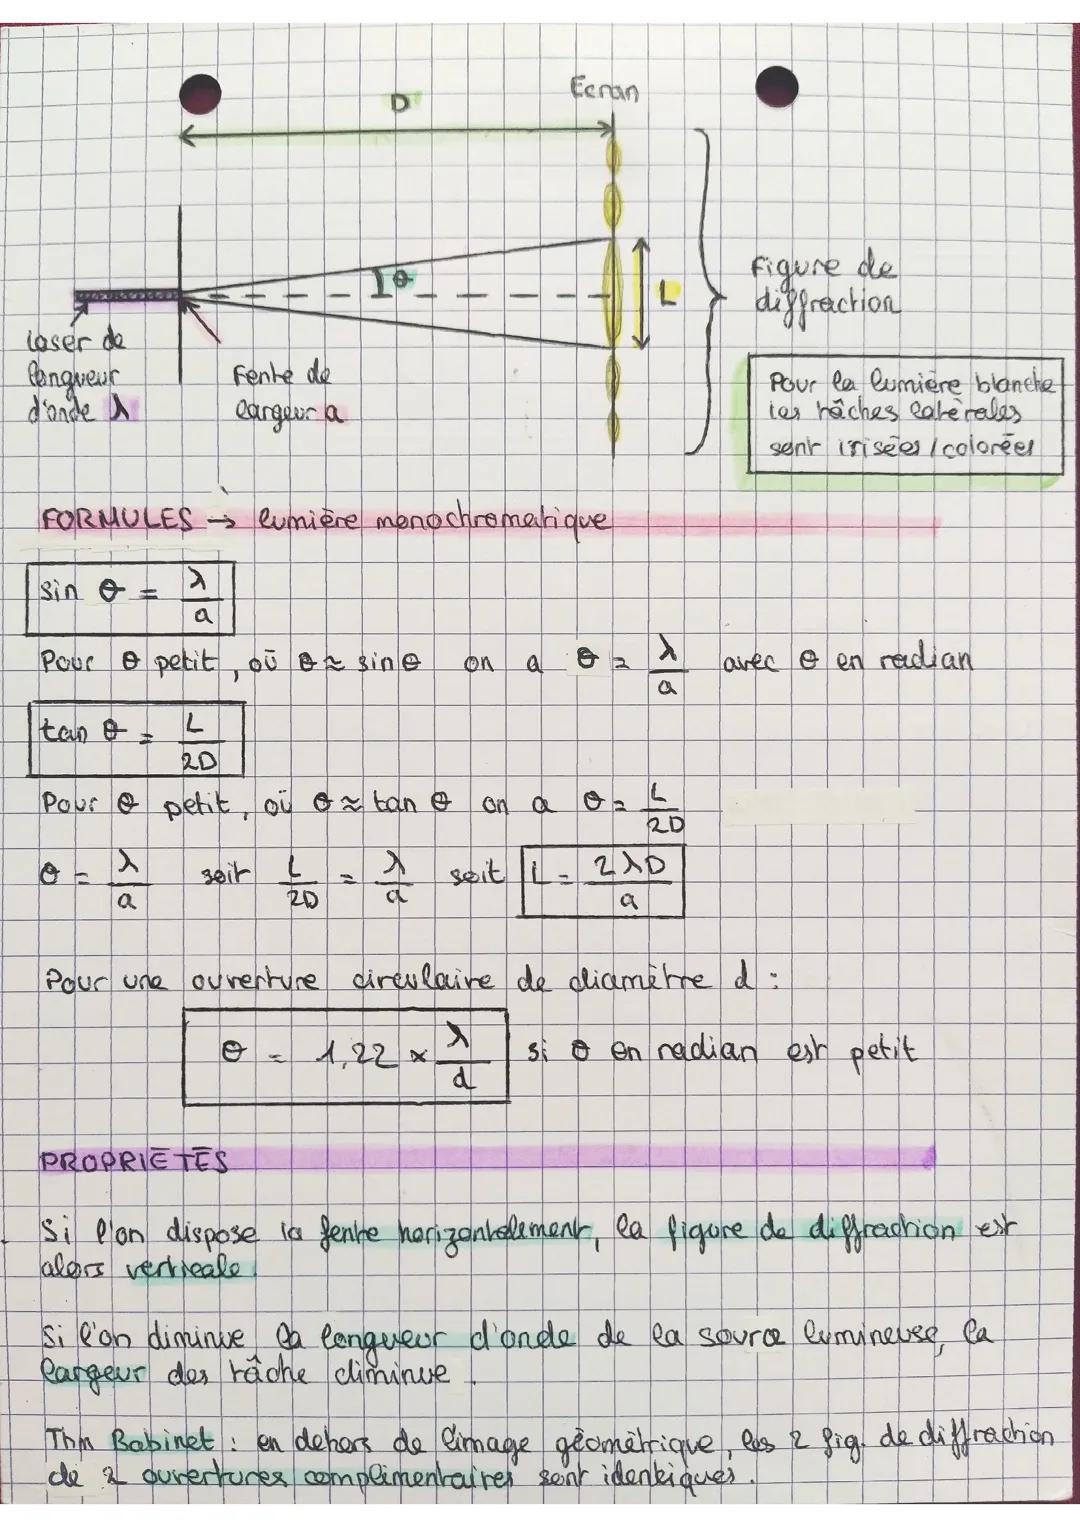 D
Ecran
θ
L
Figure de
diffraction
laser de
longueur
d'onde λ
Fente de
largeur a
Pour la lumière blanche
les tâches latérales
sont irisées / colorées
FORMULES → lumière monochromatique
sin θ = λ/a
Pour θ petit, où θ ≈ sin θ on a θ = λ/a avec θ en radian
tan θ = L/2D
Pour θ petit, où θ ≈ tan θ on a θ = L/2D
θ = λ/a soit L/2D = λ/a soit L = 2λD/a
Pour une ouverture circulaire de diamètre d :
θ = 1,22 × λ/d si θ en radian est petit
PROPRIÉTÉS
Si l'on dispose la fente horizontalement, la figure de diffraction est
alors verticale.
Si l'on diminue la longueur d'onde de la source lumineuse, la
largeur des tâche diminue.
Thm Babinet : en dehors de l'image géométrique, les 2 fig. de diffraction
de 2 ouvertures complémentaires sont identiques.